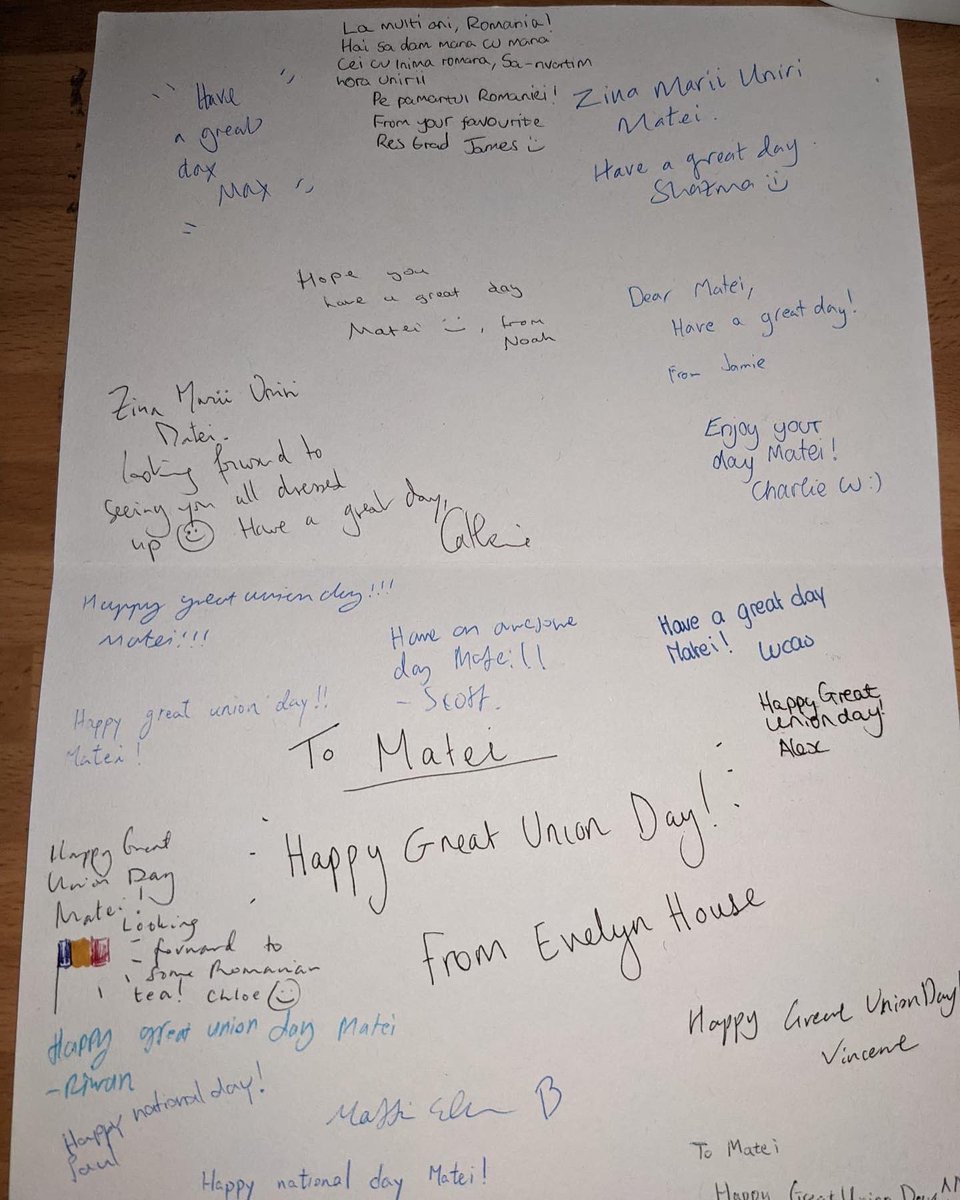 La multi ani, Romania!
Hai sa dam mana cu mana
Cei cu inima romana, Sa-nvartim
hora unirii
Pe pamantul Romaniei!
From your favourite
Res Grad James
Have
a great
day
Max
Zina Marii Uniri
Matei.
Have a great day.
Shazma
Hope you
have a great day
Matei :), from
Noah
Dear Matei,
Have a great day!
From Jamie
Zina Marii Uniri
Matei.
Looking forward to
seeing you all dressed
up Have a great day,
Enjoy your
day Matei!
Charlie W :)
Happy great union day!!!
Matei!!!
Have an awesome
day Matei!!
- Scott.
Have a great day
Matei! Lucas
Happy great union day!!
Matei!
Happy Great
Union day!
Alex
To Matei
Happy Great Union Day!
From Evelyn House
Happy Great
Union Day
Matei!
Looking
forward to
some Romanian
tea! Chloe
Happy great union day Matei
- Riwan
Happy Great Union Day!
Vincent
Happy national day!
Paul
B
Happy national day Matei!
To Matei
Happy Great Union Day